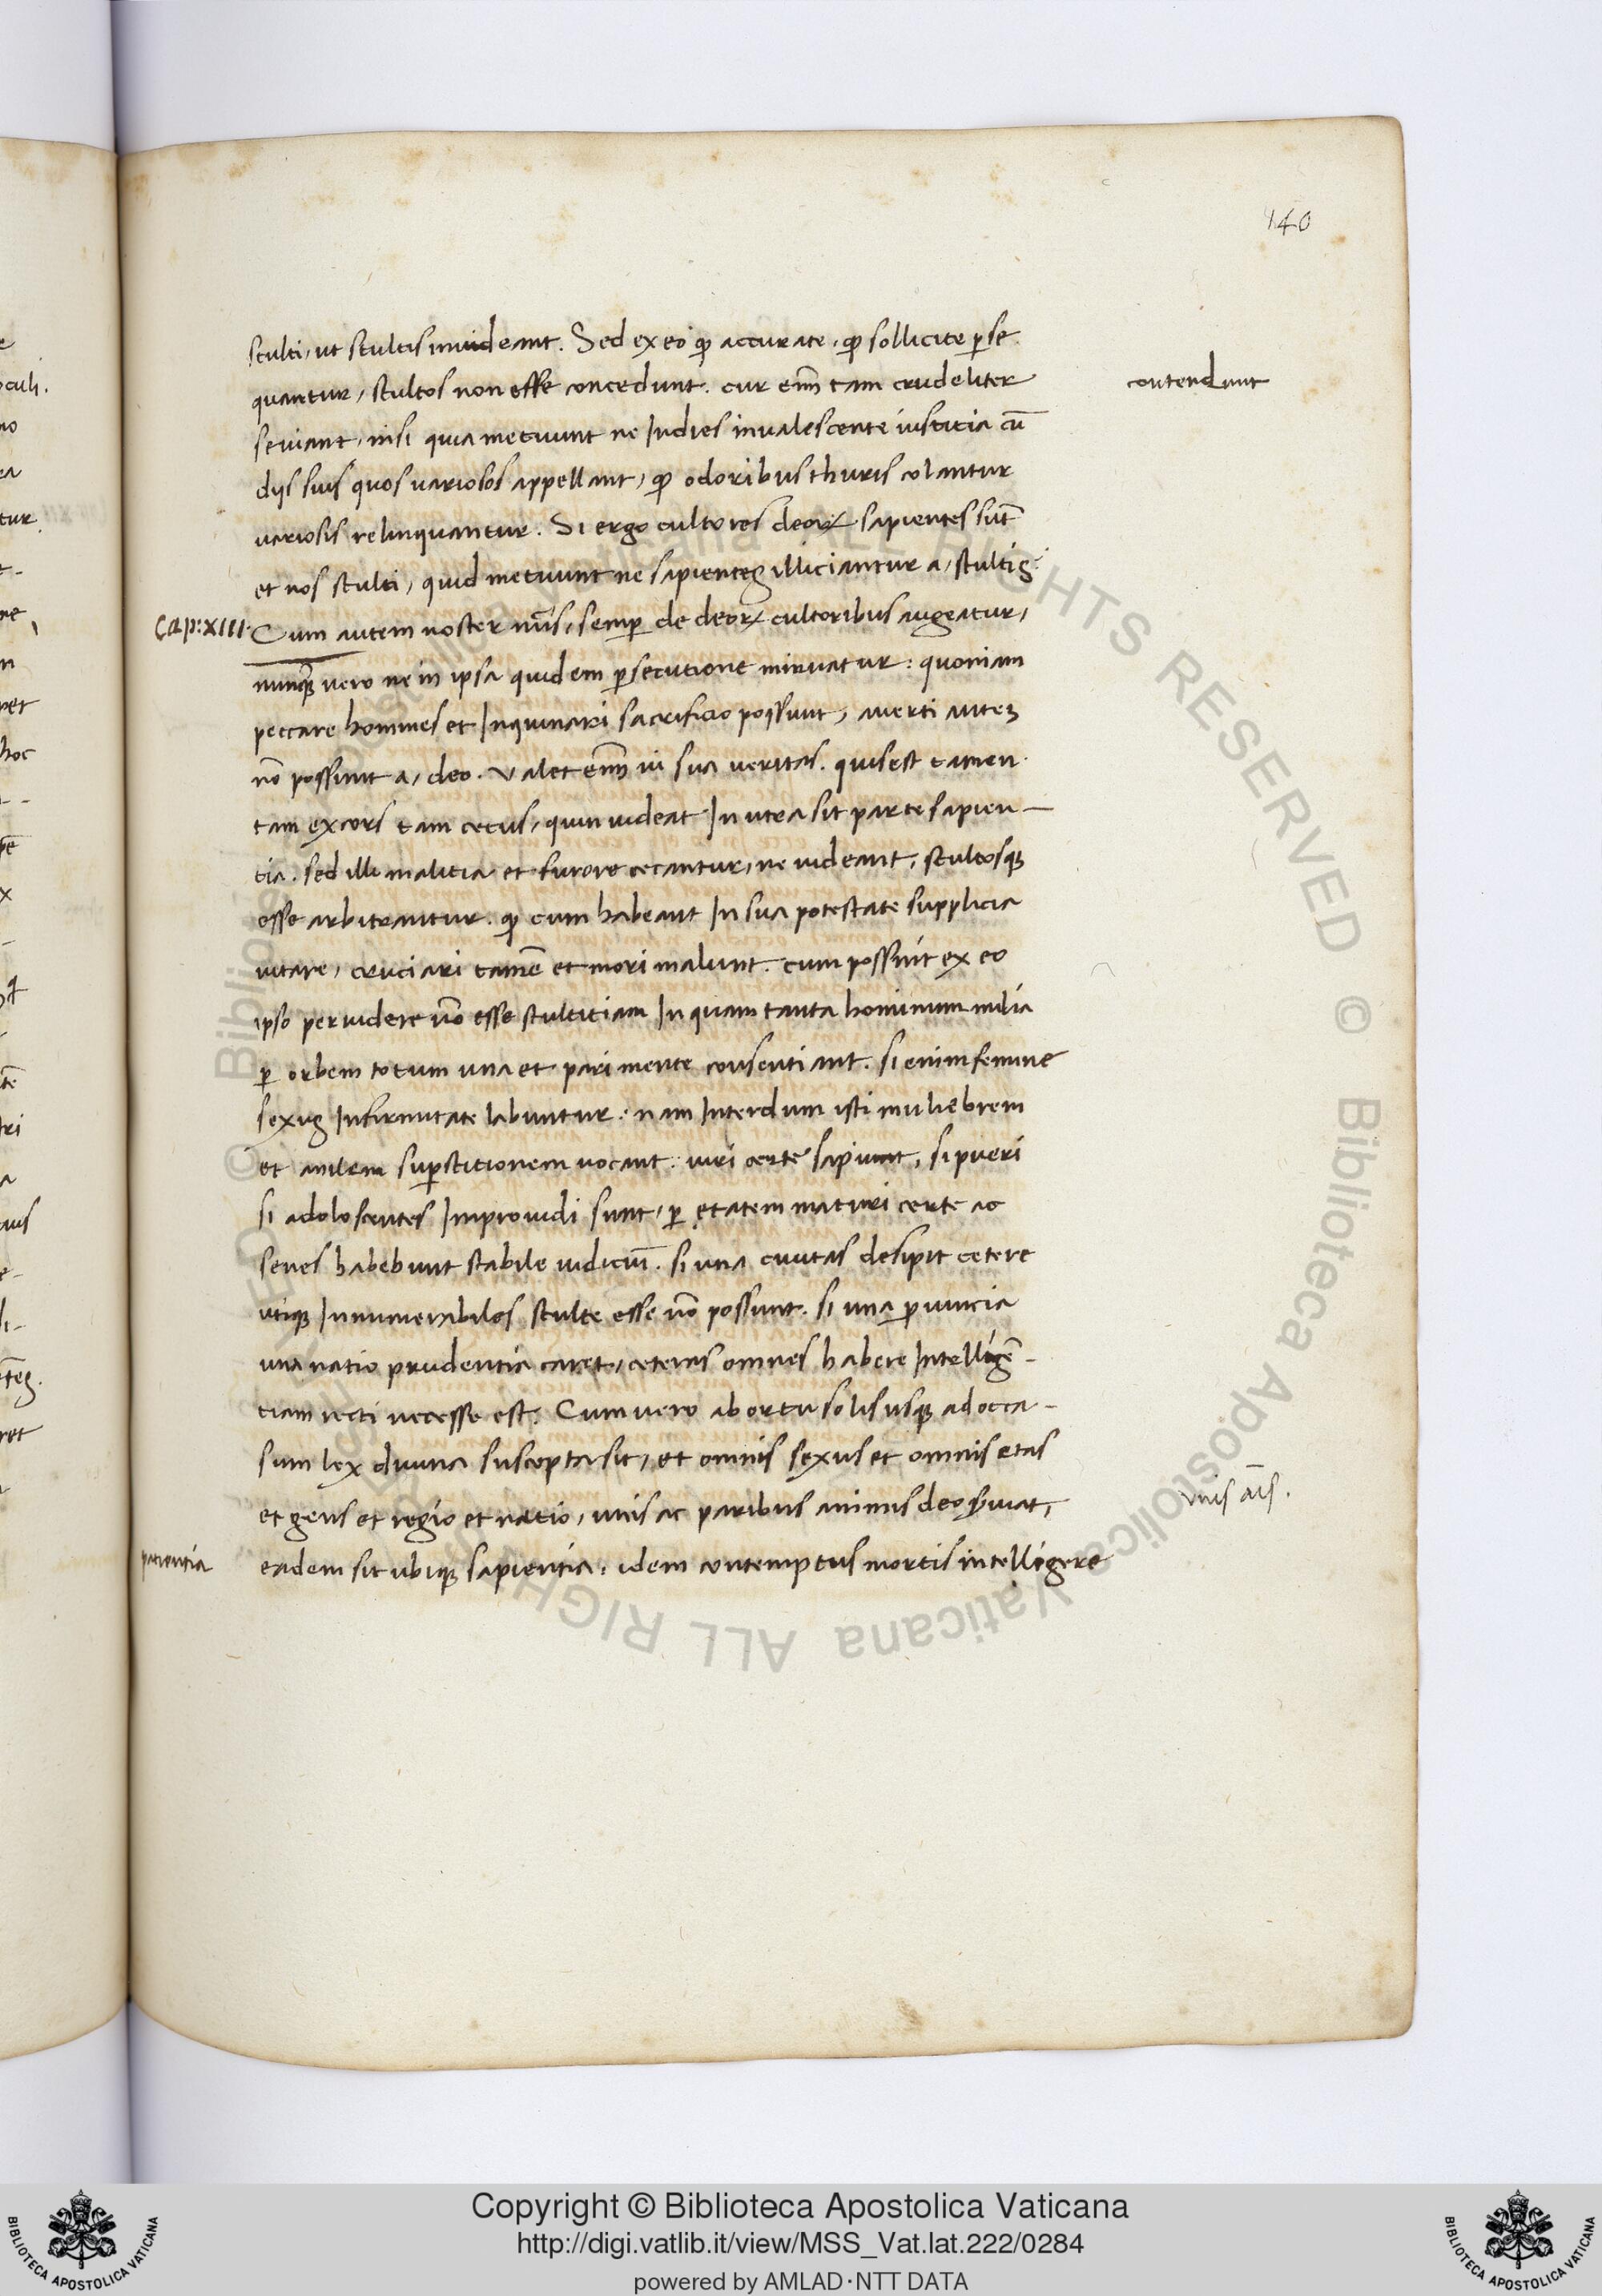 140
stulti, ut stultis inuideant. Sed ex eo qꝫ accurate, qꝫ sollicite ꝑse
quantur, stultos non esse concedunt. cur em̅ tam crudeliter
contendunt
seuiant, nisi quia metuunt ne Indies inualescente iusticia cu̅
diis suis quos uariosos appellant, qꝫ odoribus thuris colantur
uariosis relinquantur. Si ergo cultores deoꝝ sapientes su̅t
et nos stulti, quid metuunt ne sapientes illiciantur a, stultis.
Cap: XIII. Cum autem noster nu̅s, semꝑ de deoꝝ cultoribus augeatur,
nunqꝫ uero ne in ipsa quidem ꝑsecutione minuatur: quoniam
peccare homines et Inquinari sacrificio possunt, auerti autem
no̅ possunt a, deo. valet em̅ ui sua veritas. quis est tamen
tam excors tam cecus, quin uideat In utra sit parte sapien-
tia. sed illi malicia et furore cecantur, ne uideant, stultosqꝫ
esse arbitrantur. qꝫ cum habeant In sua potestate supplicia
uitare, cruciari tame̅ et mori malunt. cum possint ex eo
ipso peruidere no̅ esse stulticiam In quam tanta hominum milia
ꝑ orbem totum una et pari mente consentiant. si enim femine
sexus Infirmitate labuntur. nam Interdum isti muliebrem
et anilem suꝑstitionem uocant: uiri certe sapiunt, si pueri
si adoloscentes Improuidi sunt, ꝑ etatem maturi certe ac
senes habebunt stabile iudiciu̅. si una ciuitas desipit cetere
utiqꝫ Innumerabiles stulte esse no̅ possunt. si una ꝓuincia
una natio prudentia caret, ceteras omnes habere Intellige̅-
tiam recti necesse est. Cum vero ab ortu solis usqꝫ ad occa-
sum lex diuina suscepta sit, et omnis sexus et omnis etas
et gens et regio et natio, unis ac paribus animis deo seruiat,
unis ais.
patientia eadem sit ubiqꝫ sapientia: idem contemptus mortis intelligere
Copyright © Biblioteca Apostolica Vaticana
http://digi.vatlib.it/view/MSS_Vat.lat.222/0284
powered by AMLAD·NTT DATA